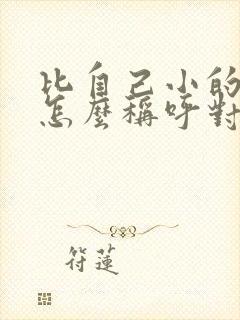 比自己小的
怎麼稱呼對
符蓮